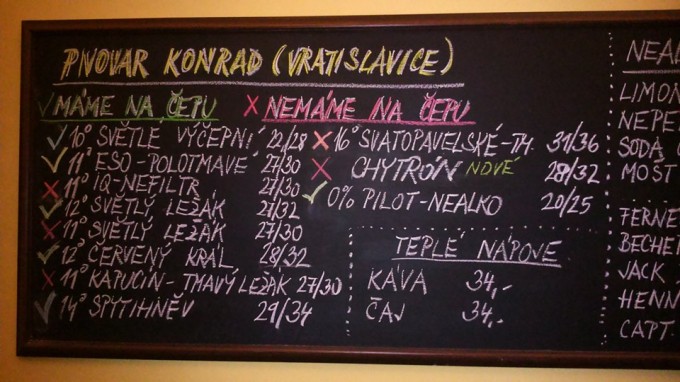 PIVOVAR KONRAD (VRATISLAVICE)
✓ MÁME NA ČEPU
✗ NEMÁME NA ČEPU
✓ 10° SVĚTLÉ VÝČEPNÍ 22/28
✓ 11° ESO-POLOTMAVÉ 27/30
✗ 11° IQ-NEFILTR. 27/30
✓ 12° SVĚTLÝ LEŽÁK 27/32
✗ 11° SVĚTLÝ LEŽÁK 27/30
✓ 12° ČERVENÝ KRÁL 28/32
✗ 11° KAPUCÍN-TMAVÝ LEŽÁK 27/30
✓ 14° SPYTIHNĚV 29/34
✗ 16° SVATOPAVELSKÉ-TM. 31/36
✗ CHYTRÓŇ NOVÉ 28/32
✓ 0% PILOT-NEALKO 20/25
TEPLÉ NÁPOVE
KÁVA 34,-
ČAJ 34,-
NEAL
LIMON
NEPE
SODA
MOŠT
FERNE
BECHE
JACK
HENN
CAPT.